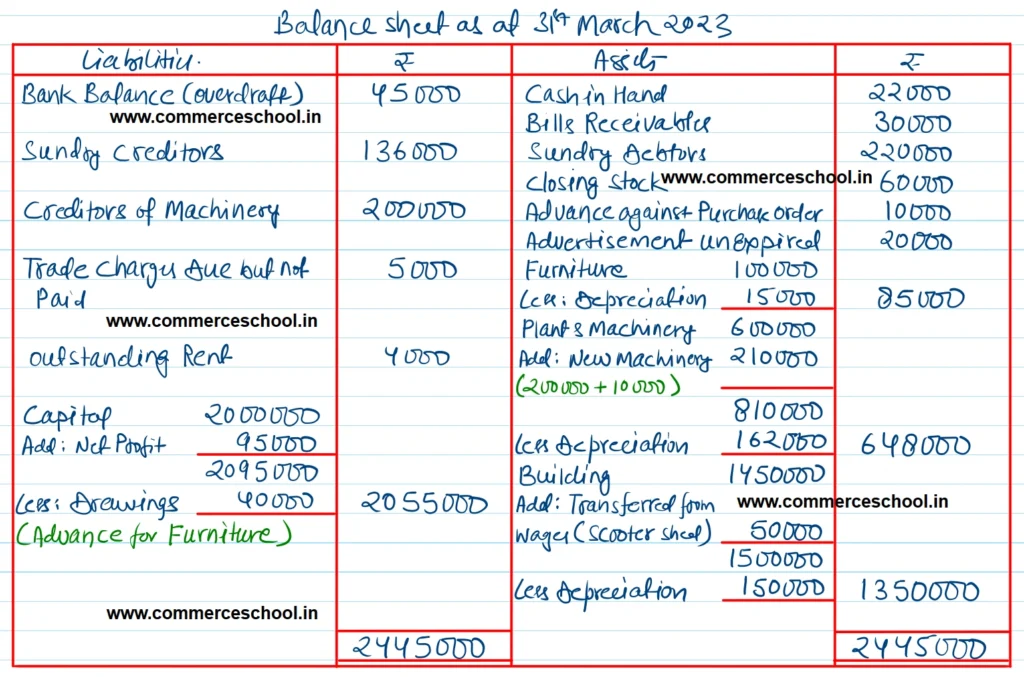 Balance sheet as at 31st March 2023
Liabilities. ₹ Assets ₹
Bank Balance (overdraft) 45000 Cash in Hand 22000
www.commerceschool.in
Bills Receivables 30000
Sundry Creditors 136000 Sundry Debtors 220000
Closing Stock www.commerceschool.in 60000
Creditors of Machinery 200000 Advance against Purchase order 10000
Advertisement unexpired 20000
Trade Charges due but not 5000 Furniture 100000
Paid Less: Depreciation 15000 85000
www.commerceschool.in
Plant & Machinery 600000
outstanding Rent 4000 Add: New Machinery 210000
(200000 + 10000)
Capital 2000000 810000
Add: Net Profit 95000 Less Depreciation 162000 648000
2095000 Building 1450000
Less: Drawings 40000 2055000 Add: Transferred from www.commerceschool.in
(Advance for Furniture) wages (Scooter shed) 50000
1500000
Less Depreciation 150000 1350000
www.commerceschool.in
2445000 2445000